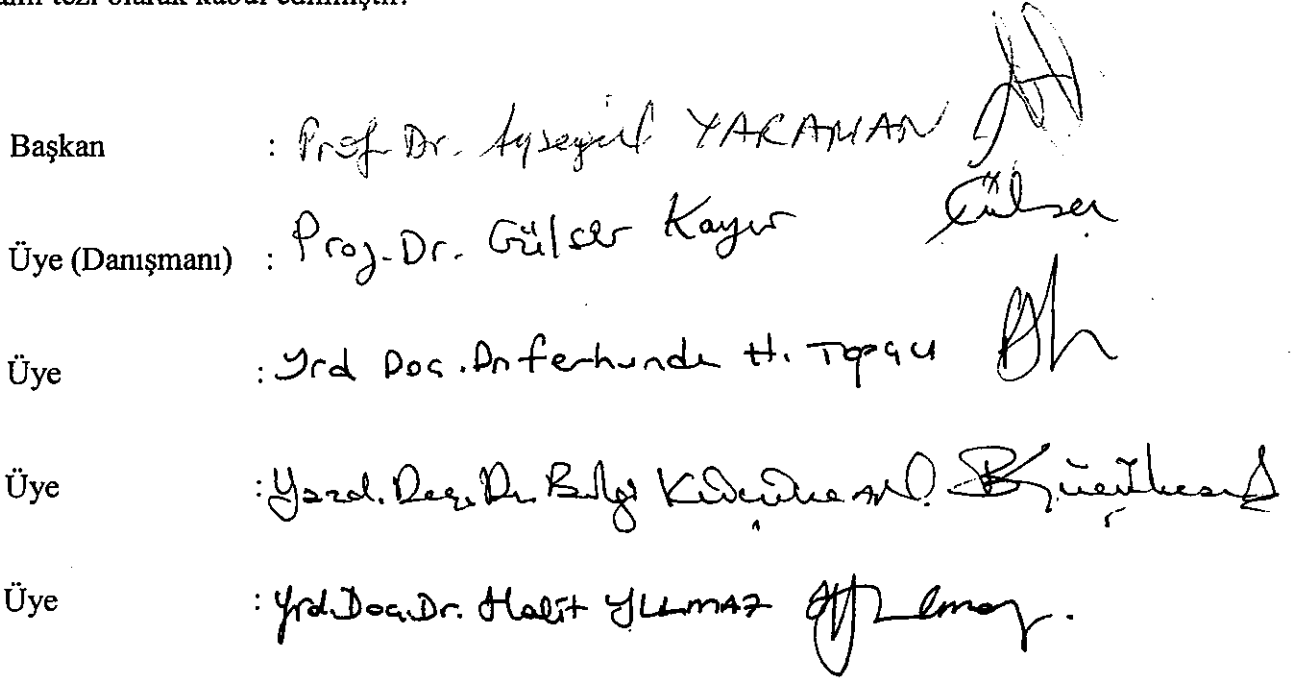 tezi olarak kabul edilmiştir.
Başkan : Prof. Dr. Ayşegül YARAMAN
Üye (Danışmanı) : Prof. Dr. Gülser Kayır Gülser
Üye : Yrd Doç. Dr. Ferhunde H. Topçu
Üye : Yard. Doç. Dr. Bilgi Küçükcan
Üye : Yrd. Doç. Dr. Halit YILMAZ